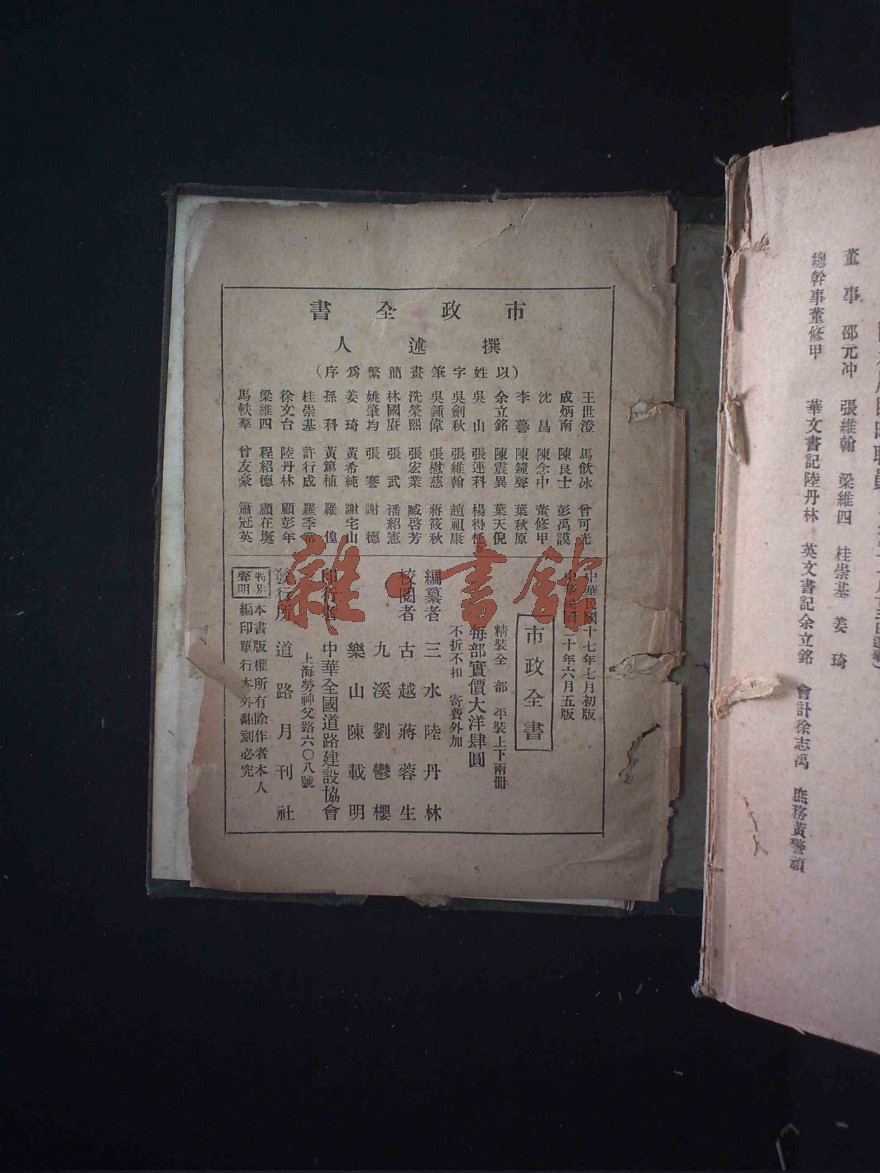 市政全書
撰述人
(以姓字筆畫簡繁爲序)
王世澄 馬飲冰 曾可光
成炳南 陳良士 彭禹謨
沈昌 陳念中 董修甲
李䕫 陳鐘聲 葉秋原
余立銘 陳震異 葉天倪
吳山 張連科 楊得任
吳劍秋 張維翰 趙祖康
吳鍾偉 張慰慈 蔣筱秋
洗榮熙 張宏業 臧啓芳
林國賡 張武 潘紹憲
姚肇均 張謇 謝德
姜琦 黃希純 謝宅山
孫科 黃篤植 羅惶
桂崇基 許行成 羅季常
徐文台 陸丹林 顧彭年
梁維四 程紹德 顧在埏
馬軼羣 曾友豪 蕭冠英
中華民國十七年七月初版
中華民國二十年六月五版
市政全書
精裝全部 平裝上下兩冊
每部實價大洋肆圓
不折不扣 寄費外加
編纂者 三水陸丹林
校閱者 古越蔣蓉生
九溪劉鬱櫻
樂山陳載明
印行者 中華全國道路建設協會
上海勞神父路六〇八號
發行所 道路月刊社
特別聲明 本書版權所有除作者本人
編印單行本外翻刻必究
雜·書館
董事 邵元冲 張維翰 梁維四 桂崇基 姜琦
總幹事董修甲 華文書記陸丹林 英文書記余立銘 會計徐志禹 庶務黃警頑